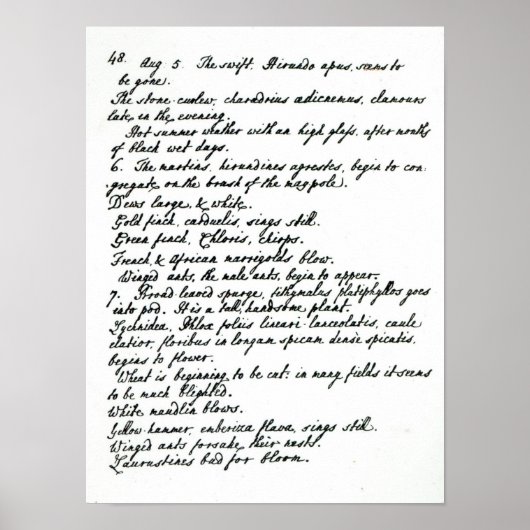 48.
Aug 5. The swift, Hirundo apus, seems to
be gone.
The stone-curlew, charadrius œdicnemus, clamours
late in the evening.
Hot summer weather with an high glass, after months
of black wet days.
6. The martins, hirundines agrestes, begin to con:
gregate on the brush of the maypole.
Dews large, & white.
Gold finch, carduelis, sings still.
Green finch, Chloris, chirps.
French, & African marrigolds blow.
Winged ants, the male ants, begin to appear.
7. Broad-leaved spurge, tithymalus platiphyllos goes
into pod. It is a tall, handsome plant.
Lychnidea, Phlox foliis lineari-lanceolatis, caule
elatior, floribus in longam spicam dense spicatis,
begins to flower.
Wheat is beginning to be cut: in many fields it seems
to be much blighted.
White maudlin blows.
Yellow-hammer, emberiza flava, sings still.
Winged ants forsake their nests.
Laurustines bud for bloom.